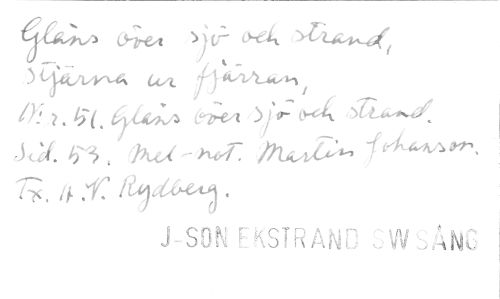 Gläns över sjö och strand,
stjärna ur fjärran,
N:r. 51. Gläns över sjö och strand.
Sid. 53. Mel-not. Martin Johanson.
Tx. A.V. Rydberg.
J-SON EKSTRAND SW SÅNG